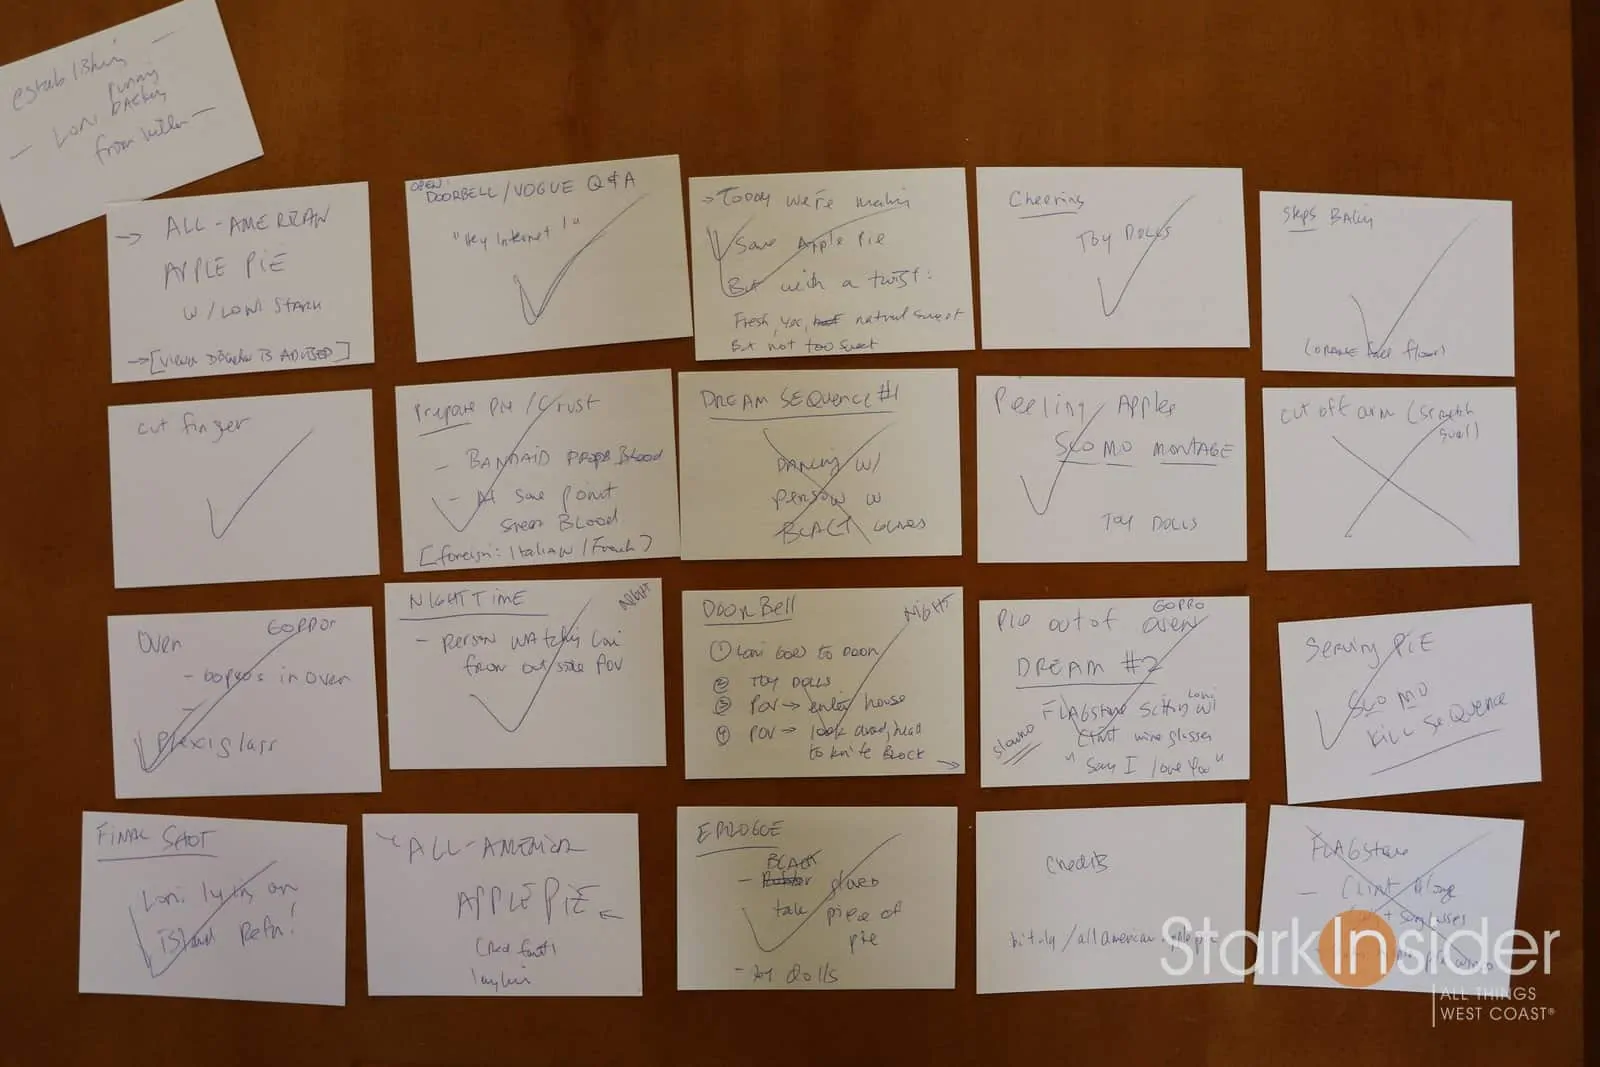 establishing
Loni
from
→ ALL-AMERICAN
APPLE PIE
W/LONI STARK
→ [VIEWER IS ADVISED]
OPEN:
DOORBELL/VOGUE Q&A
"Hey Internet!"
→ Today we're making
Same Apple Pie
But with a twist:
Fresh, yes, natural sweet
But not too sweet
Cheering
TOY DOLLS
Steps Baking
floor)
cut finger
Prepare Pie / Crust
- BANDAID PROPS Blood
- At some point
smear BLOOD
[foreign: Italian / French]
DREAM SEQUENCE #1
DANCING W/
PERSON W
BLACK GLOVES
Peeling Apples
SLO MO MONTAGE
TOY DOLLS
cut off arm
OVEN GOPRO
- in oven
-
Plexiglass
NIGHTTIME NIGHT
- PERSON WATCHING Loni
from outside POV
DOORBELL NIGHT
① Loni Goes to Door
② TOY DOLLS
③ POV → enter house
④ POV → look
to knife BLOCK
→
GOPRO
Pie out of oven
DREAM #2
Loni
FLAGSTONE Sitting w/
slomo Clint wine glasses
"Say I love you"
Serving PIE
SLO MO
Kill Sequence
FINAL SHOT
Loni lying on
island
ALL-AMERICAN
APPLE PIE ←
EPILOGUE
BLACK
- gloves
take piece of
pie
- toy dolls
Credits
FLAGstone
- Clint Along
sunglasses
StarkInsider
ALL THINGS
WEST COAST®